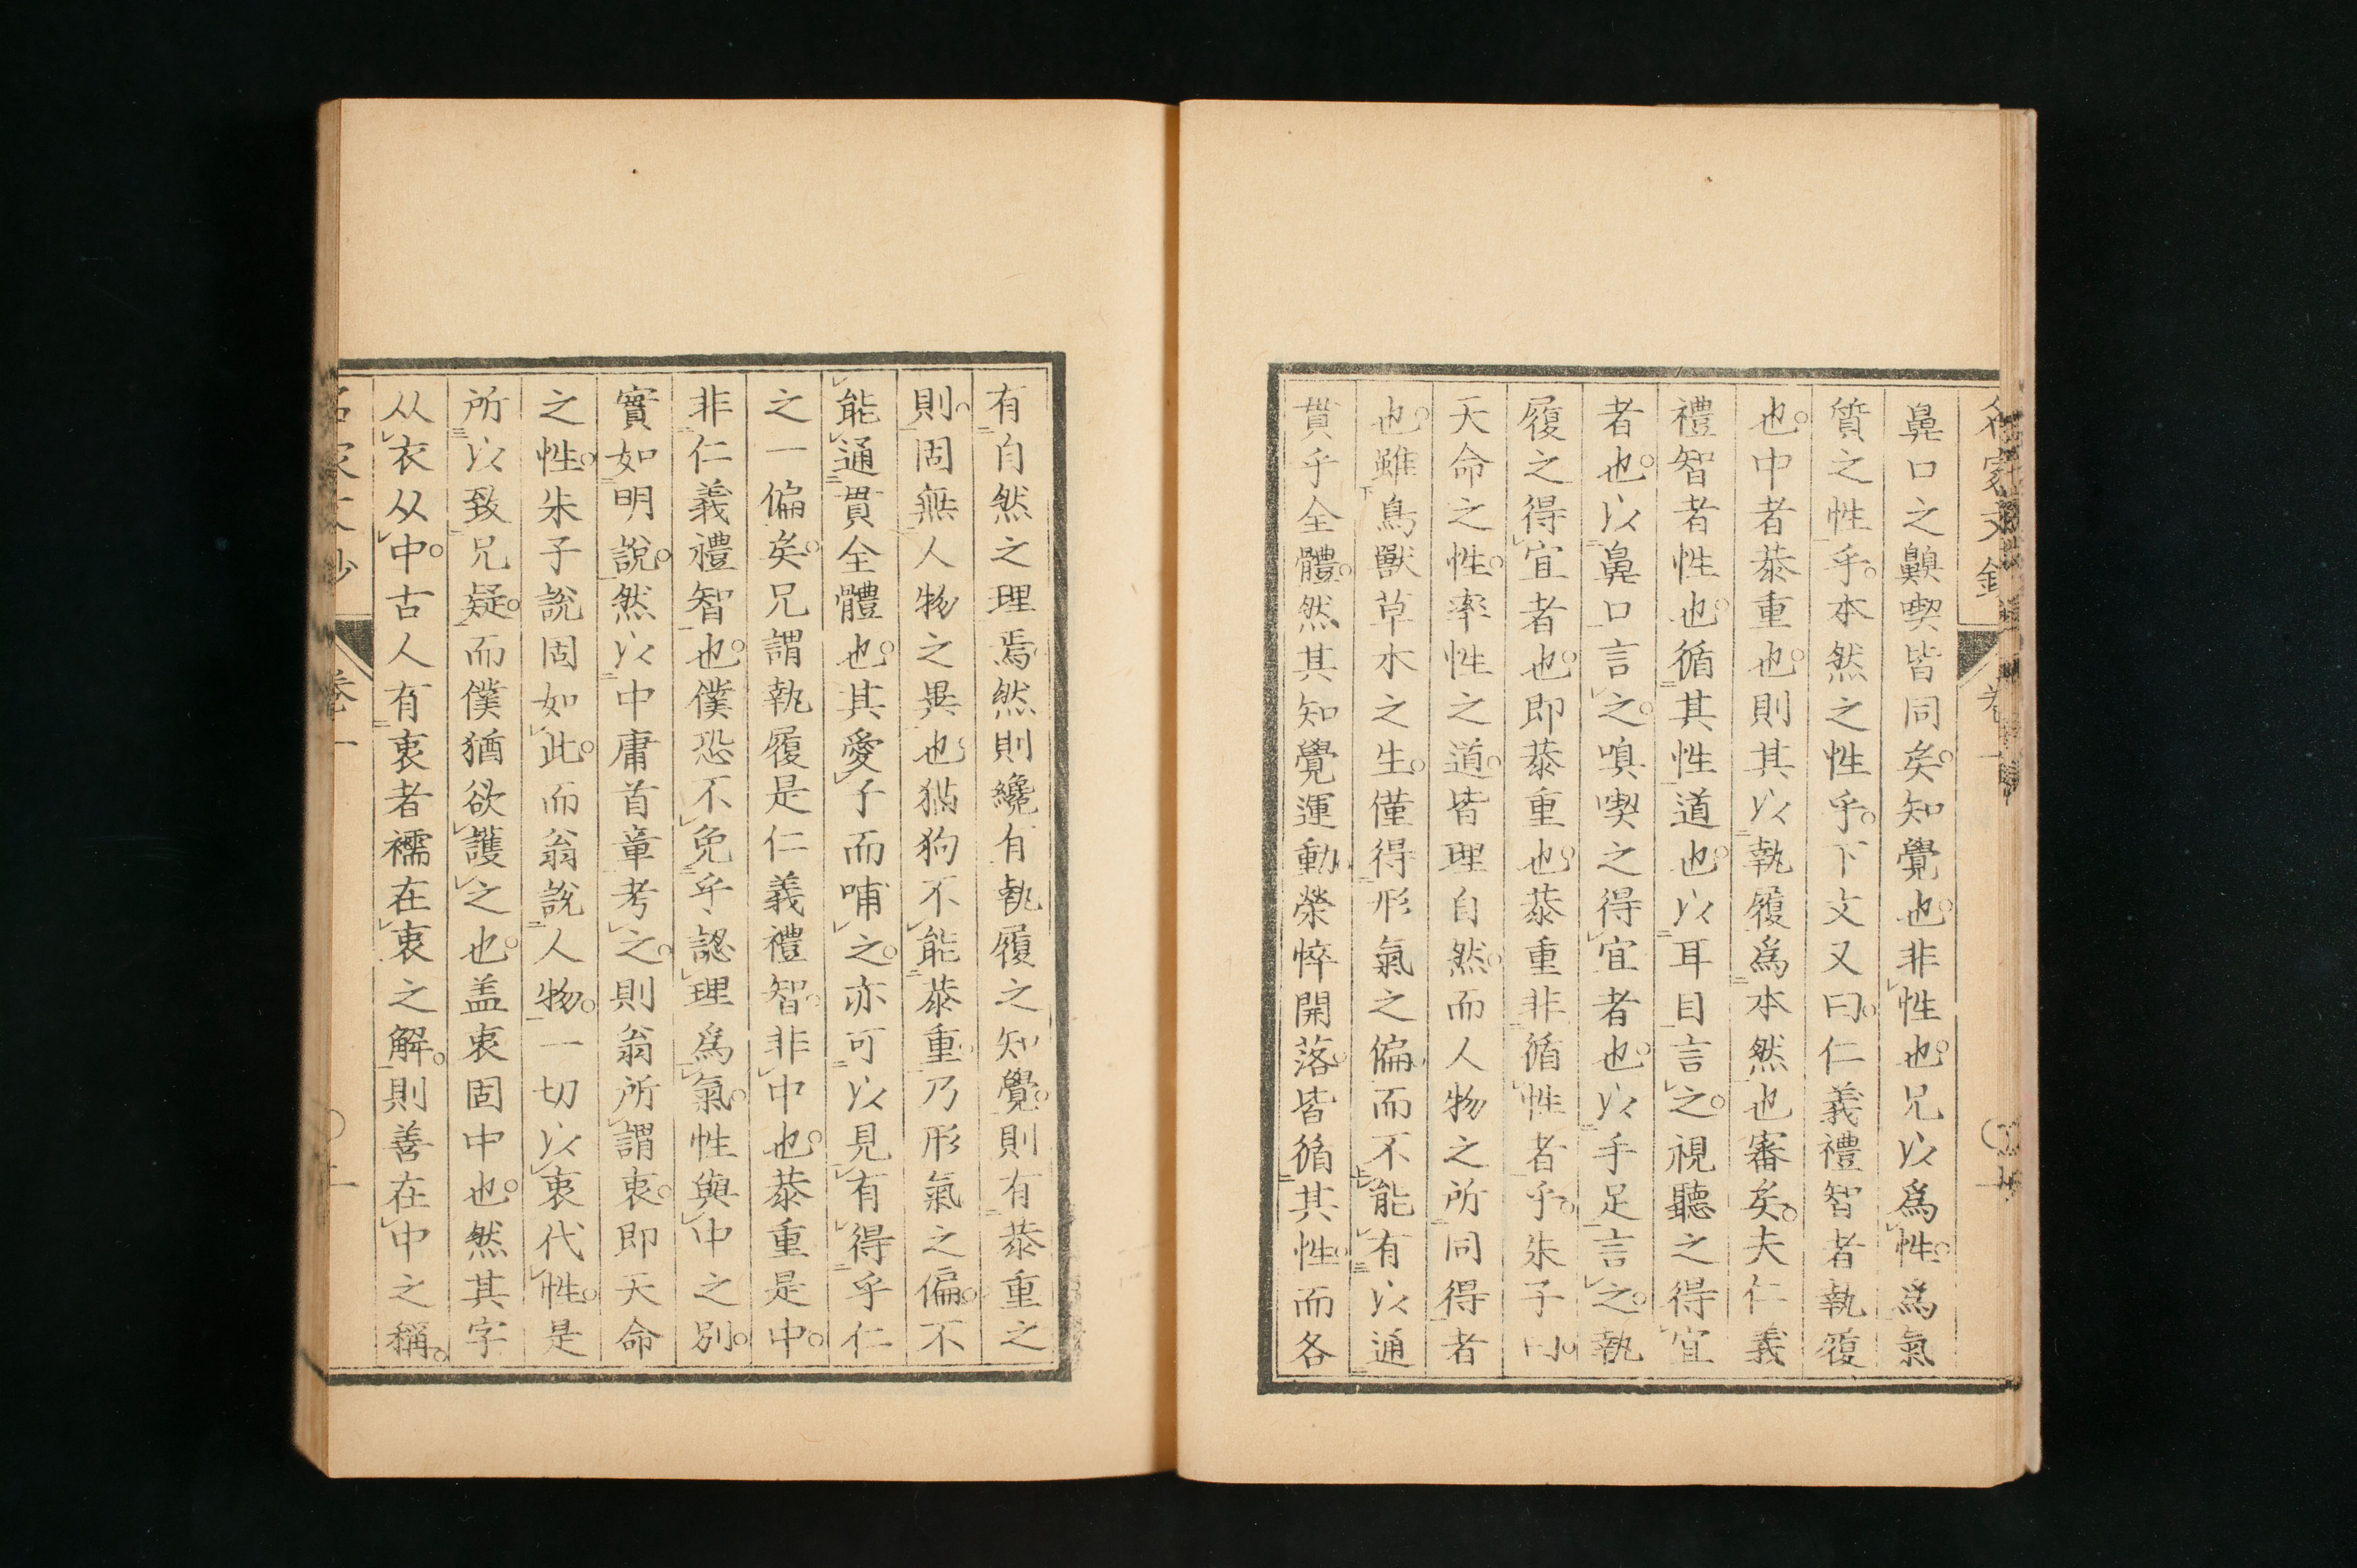 名家文鈔
卷一
鼻口之齅喫皆同矣。知覺也。非性也。兄以爲性。爲氣
質之性乎。本然之性乎。下文又曰。仁義禮智者執履
也。中者㳟重也。則其以執履爲本然也審矣。夫仁義
禮智者性也。循其性道也。以耳目言之。視聽之得宜
者也。以鼻口言之。嗅喫之得宜者也。以手足言之。執
履之得宜者也。即㳟重也。㳟重非循性者乎。朱子曰。
天命之性。率性之道。皆理自然。而人物之所同得者
也。雖鳥獸草木之生。僅得形氣之偏。而不能有以通
貫乎全體。然其知覺運動。榮悴開落。皆循其性。而各
有自然之理焉。然則纔有執履之知覺。則有㳟重之
則。固無人物之異也。猫狗不能㳟重。乃形氣之偏。不
能通貫全體也。其愛子而哺之。亦可以見有得乎仁
之一偏矣。兄謂執履是仁義禮智。非中也。㳟重是中。
非仁義禮智也。僕恐不免乎、認理爲氣。性與中之別。
實如明說。然以中庸首章考之。則翁所謂衷。即天命
之性。朱子說固如此。而翁說人物。一切以衷代性。是
所以致兄疑。而僕猶欲護之也。盖衷固中也。然其字
从衣从中。古人有衷者襦在衷之解。則善在中之稱。
名家文鈔
卷一